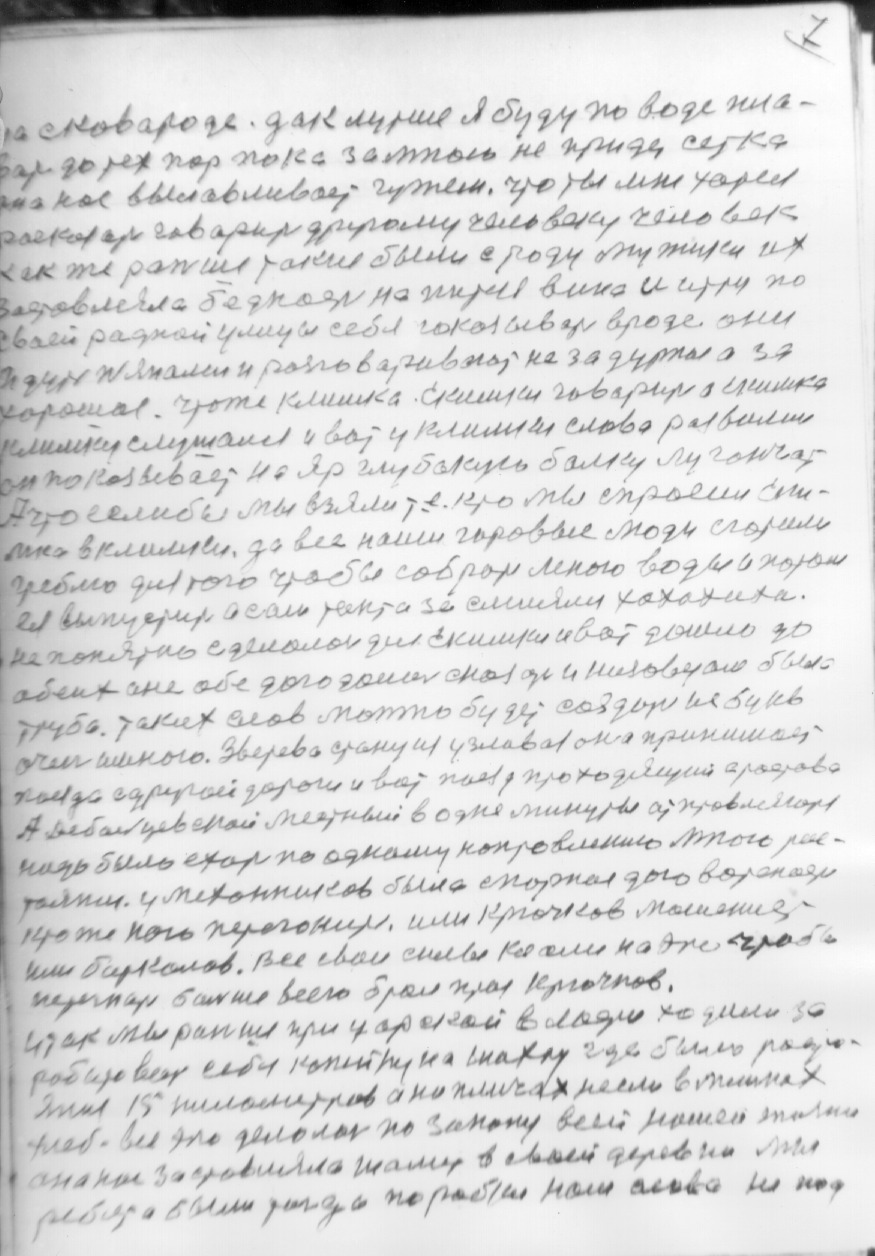 7
на сковароде. дак лутше я буду по воде пла-
вать до тех пор пока замною не приде сетка
она нас вылавливает гужем. что ты мне хател
росказать говарит другому человеку человек
как же раньше такие были с году мужики их
заставляла бедность напится вина и итти по
своей радной улицы себя показывать вроде они
идут пянами и разговаривают не за дурное а за
хорошое. что же климка Скимки говарит а скимка
климку слушался и вот у климки слова развили
он показывает на Яр глубакую балку
А что если бы мы взяли те. кто мы спросил Ски-
мка в климки. да все наши гаровые люди
греблю для того чтобы собрать много воды и потом
ея выпустит а сами тагда за смияли хахахиха.
не понятно сделалось для Скимки и вот дошло до
обеих ане обе договорились сказать и низовецаю была
труба. таких слов можно будет создать из букв
очень много. Зверева станция узловая она принимает
поезда с другой дароги и вот поезд проходящий с ростова
А дебальцевской местный в одне минуты отправляются
надо было ехать по одному направлению много рас-
таяния. у механников была спорная договоренность
кто же кого перегонит. или Крючков машенист
или Баркалов. Все свои силы клали на это чтобы
перегнать больше всего брал прав Крючков.
итак мы раньше при царской власти ходили за
работовать себе копейку на шахту где было растоя-
яния 15 километров а на пличах несли в мешках
хлеб. все это делолось по закону всей нашей жизни
она нас заставляла
в своей деревни мы
ребята были тогда парабки нам слова не под